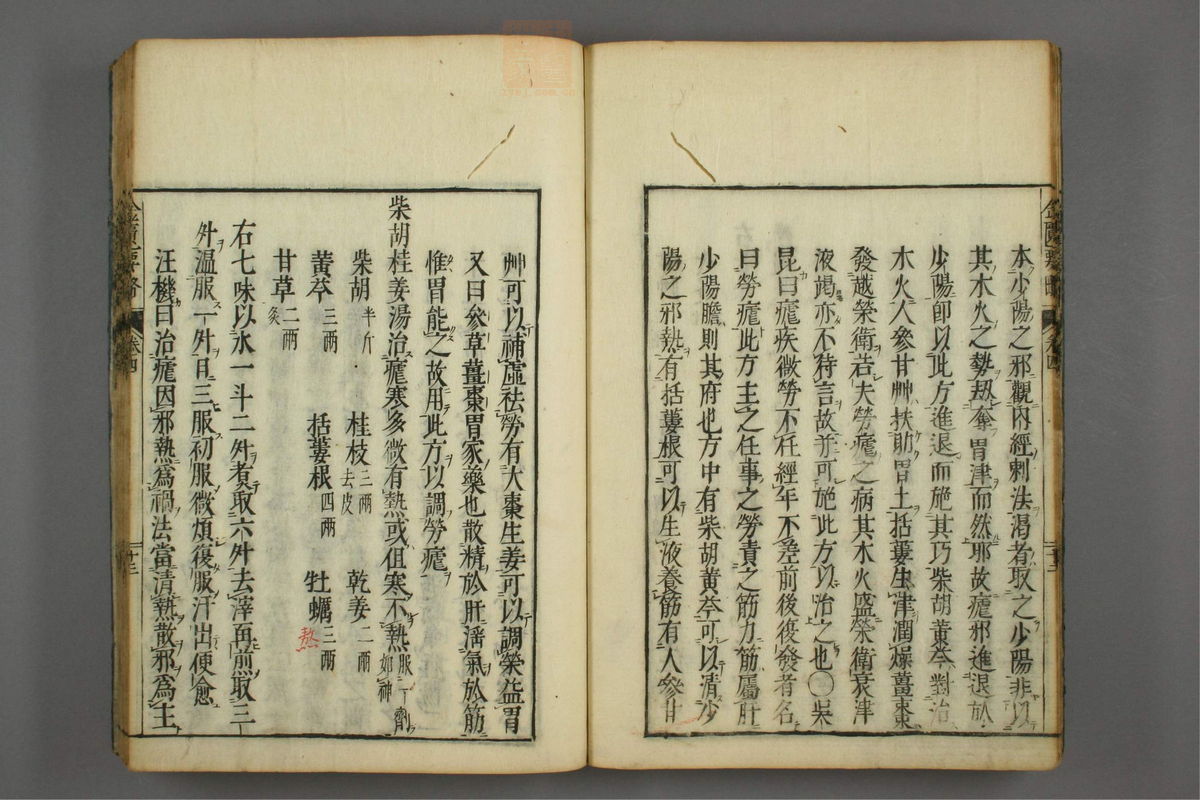 本少陽之邪觀內經刺法渴者取之少陽非以
其木火之勢刼奪胃津而然耶故瘧邪進退於
少陽卽以此方進退而施其巧柴胡黃芩對治
木火人參甘艸扶助胃土括蔞生津潤燥薑棗
發越榮衛若夫勞瘧之病其木火盛榮衛衰津
液竭亦不待言故並可施此方以治之也〇吳
昆曰瘧疾微勞不任經年不差前後復發者名
曰勞瘧此方主之任事之勞責之筋力筋屬肝
少陽膽則其府也方中有柴胡黃芩可以清少
陽之邪熱有括蔞根可以生液養筋有人參甘
艸可以補虛祛勞有大棗生姜可以調榮益胃
又曰參草薑棗胃家藥也散精於肝淫氣於筋
惟胃能之故用此方以調勞瘧
柴胡桂姜湯治瘧寒多微有熱或但寒不熱服一劑如神
柴胡半斤 桂枝三兩去皮 乾姜二兩
黃芩三兩 括蔞根四兩 牡蠣三兩熬
甘草二兩炙
右七味以水一斗二升煮取六升去滓再煎取三
升溫服一升日三服初服微煩復服汗出便愈
汪機曰治瘧因邪熱爲禍法當清熱散邪爲主
金匱要略 卷四
十三